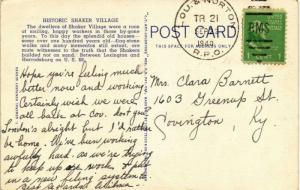 HISTORIC SHAKER VILLAGE
The dwellers of Shaker Village were a race
of smiling, happy workers in those by-gone
years. To this day the splendor of old
houses—over one hundred years old—flag-stone
walks and many memories still extant, are
mute witnesses to the truth that the Shakers
builded not on sand. Between Lexington and
Harrodsburg on U. S. 68.
POST CARD
THIS SPACE FOR ADDRESS ONLY
LOU & NORTON
TR 21
1939
R.P.O.
RMS
Hope you're feeling much
better now and working
Certainly wish we were
all back at Cov. don't you
London's alright but I'd rather
be home. We've been working
awfully hard as we're trying
to keep up our work
in a new filing system
Mrs. Clara Barnett
1603 Greenup St.
Covington, Ky